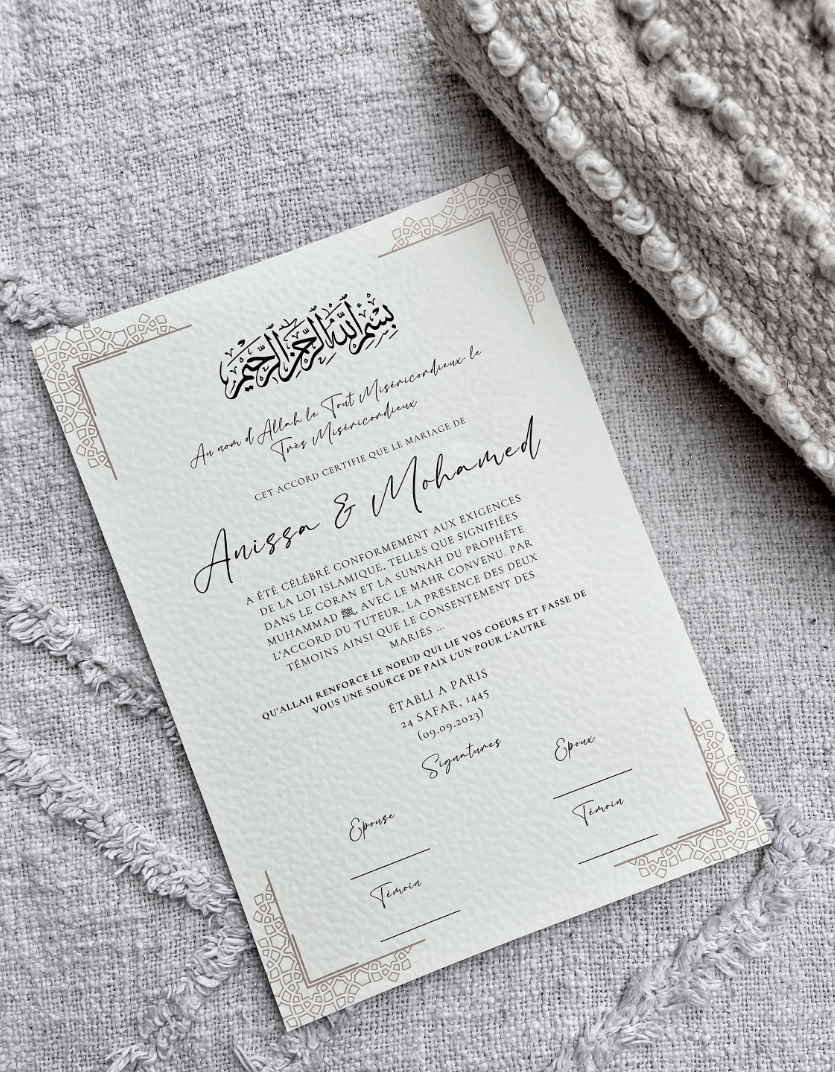 بِسْمِ اللَّهِ الرَّحْمَٰنِ الرَّحِيمِ
Au nom d'Allah le Tout Miséricordieux le
Très Miséricordieux
CET ACCORD CERTIFIE QUE LE MARIAGE DE
Anissa & Mohamed
A ÉTÉ CÉLÉBRÉ CONFORMEMENT AUX EXIGENCES
DE LA LOI ISLAMIQUE, TELLES QUE SIGNIFIÉES
DANS LE CORAN ET LA SUNNAH DU PROPHÈTE
MUHAMMAD ﷺ, AVEC LE MAHR CONVENU, PAR
L'ACCORD DU TUTEUR, LA PRÉSENCE DES DEUX
TÉMOINS AINSI QUE LE CONSENTEMENT DES
MARIÉS ...
QU'ALLAH RENFORCE LE NOEUD QUI LIE VOS COEURS ET FASSE DE
VOUS UNE SOURCE DE PAIX L'UN POUR L'AUTRE
ÉTABLI A PARIS
24 SAFAR, 1445
(09.09.2023)
Signatures
Epouse
Epoux
Témoin
Témoin